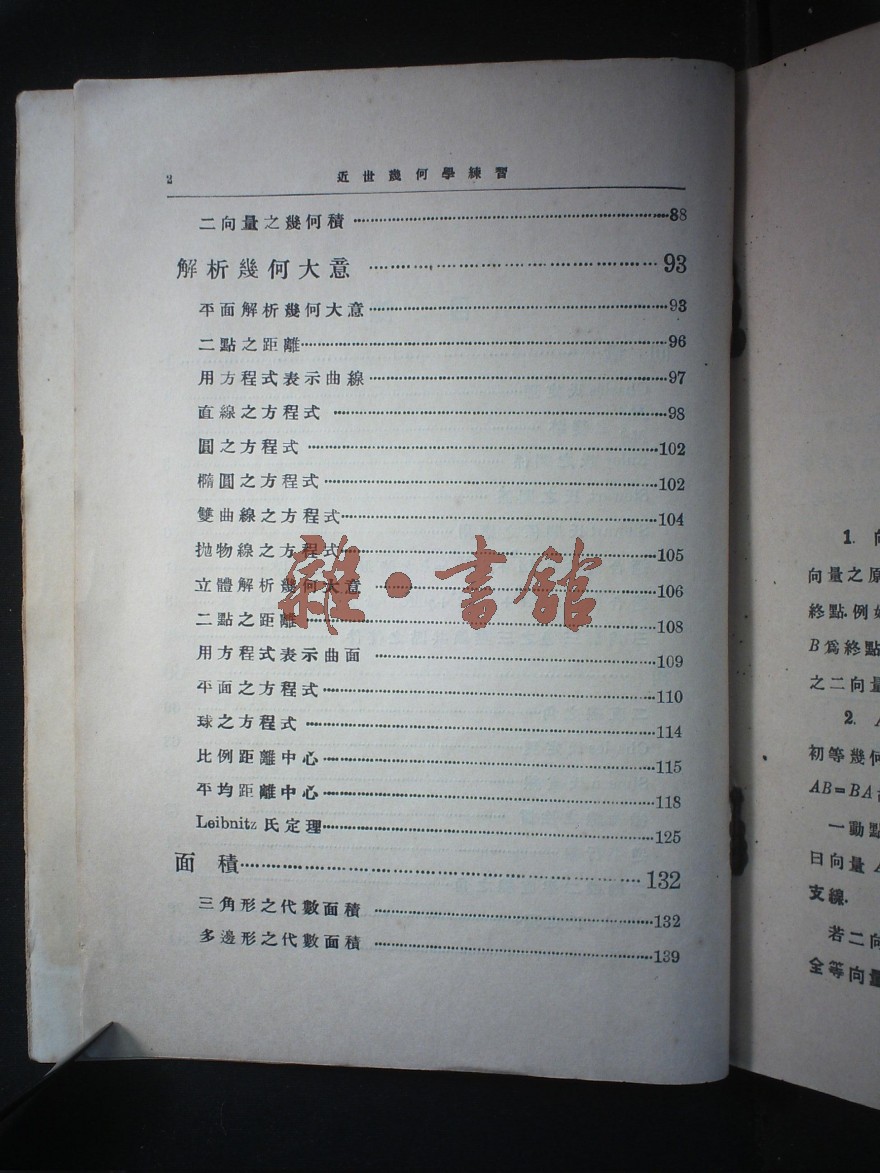 2 近世幾何學練習
二向量之幾何積 88
解析幾何大意 93
平面解析幾何大意 93
二點之距離 96
用方程式表示曲線 97
直線之方程式 98
圓之方程式 102
橢圓之方程式 102
雙曲線之方程式 104
拋物線之方程式 105
立體解析幾何大意 106
二點之距離 108
用方程式表示曲面 109
平面之方程式 110
球之方程式 114
比例距離中心 115
平均距離中心 118
Leibnitz 氏定理 125
面積 132
三角形之代數面積 132
多邊形之代數面積 139
雜·書館
1. 向
向量之原
終點.例如
B爲終點
之二向量
2.
初等幾何
AB=BA
一動點
曰向量
支線.
若二向
全等向量